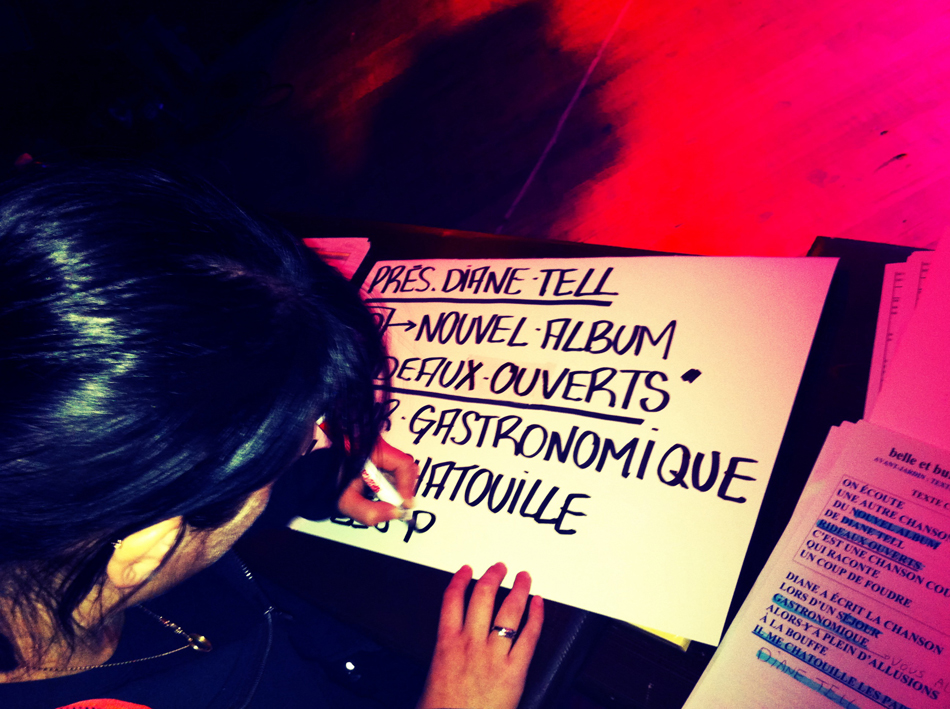 PRÉS. DIANE TELL
→ NOUVEL ALBUM
DEAUX OUVERTS"
GASTRONOMIQUE
HATOUILLE
P
belle et bu
TEXTE
ON ÉCOUTE
UNE AUTRE CHANSON
DU NOUVEL ALBUM
DE DIANE TELL
RIDEAUX OUVERTS
C'EST UNE CHANSON CO
QUI RACONTE
UN COUP DE FOUDRE
DIANE A ÉCRIT LA CHANSON
LORS D'UN SÉJOUR
GASTRONOMIQUE
ALORS Y A PLEIN D'ALLUSIONS
À LA BOUFFE
IL ME CHATOUILLE LES PAP
DIANE TELL